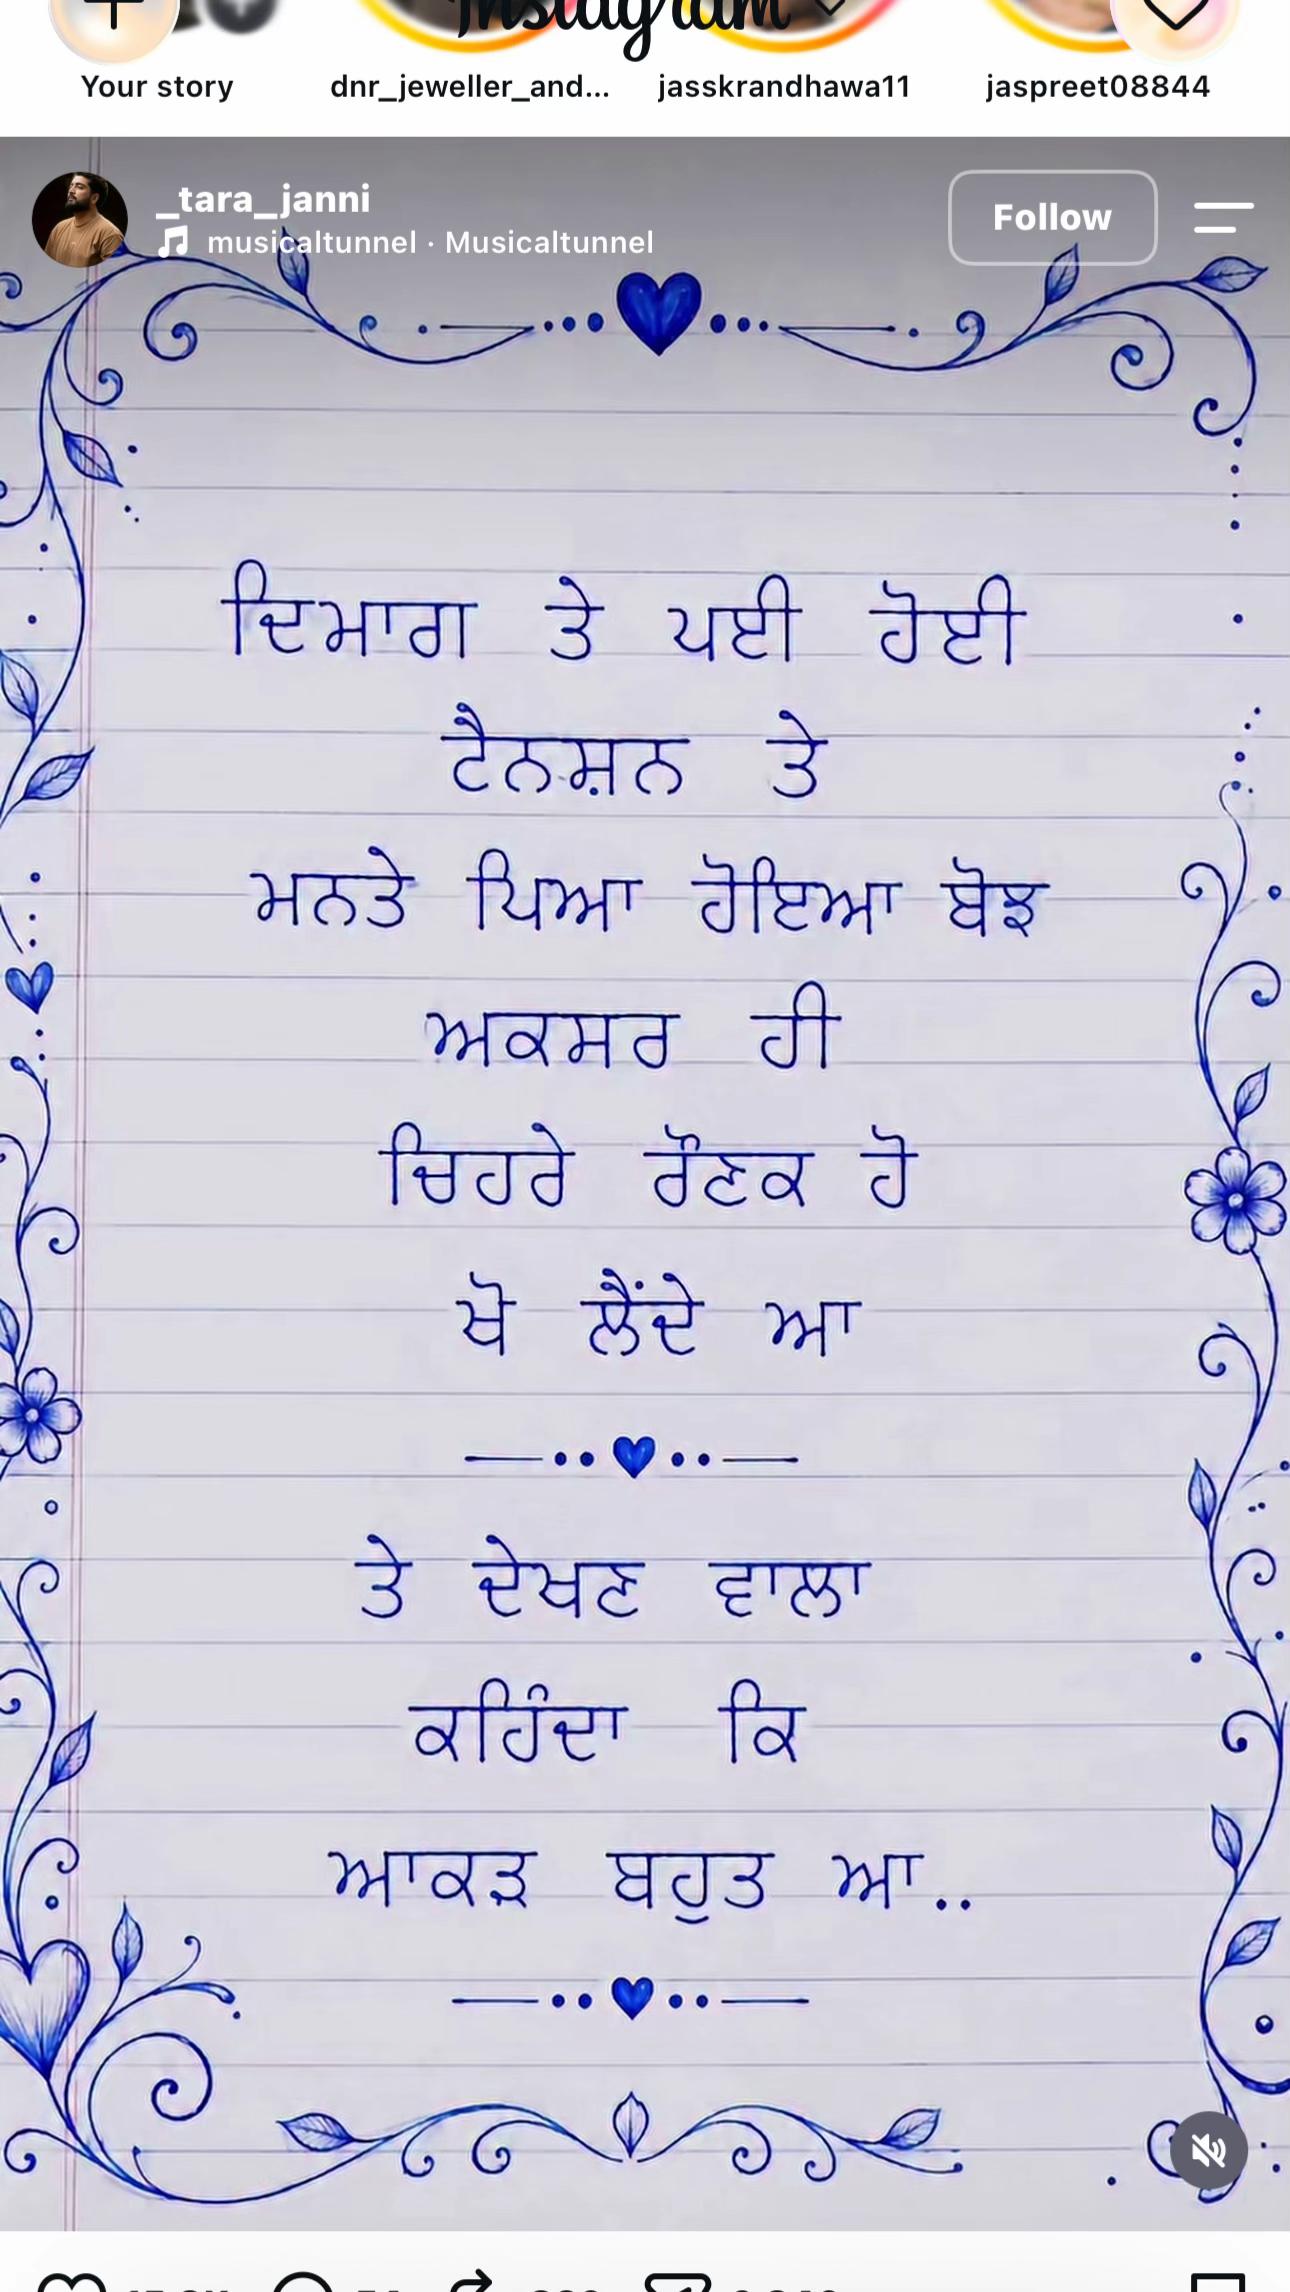 Instagram
Your story
dnr_jeweller_and...
jasskrandhawa11
jaspreet08844
_tara_janni
musicaltunnel · Musicaltunnel
Follow
ਦਿਮਾਗ ਤੇ ਪਈ ਹੋਈ
ਟੈਨਸ਼ਨ ਤੇ
ਮਨਤੇ ਪਿਆ ਹੋਇਆ ਬੋਝ
ਅਕਸਰ ਹੀ
ਚਿਹਰੇ ਰੌਣਕ ਹੋ
ਖੋ ਲੈਂਦੇ ਆ
ਤੇ ਦੇਖਣ ਵਾਲਾ
ਕਹਿੰਦਾ ਕਿ
ਆਕੜ ਬਹੁਤ ਆ..